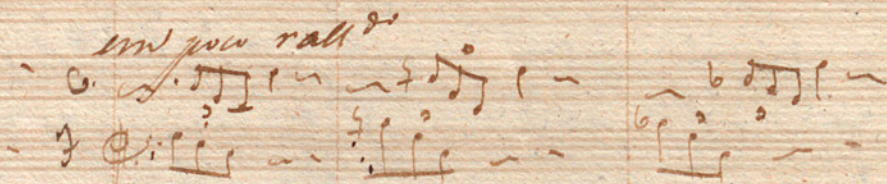 un poco rall.do